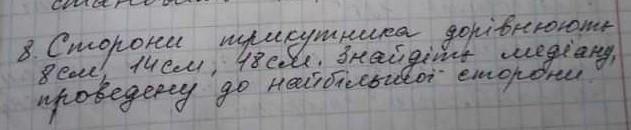 становить
8. Сторони трикутника дорівнюють
8см, 14см, 18см. Знайдіть медіану,
проведену до найбільшої сторони.